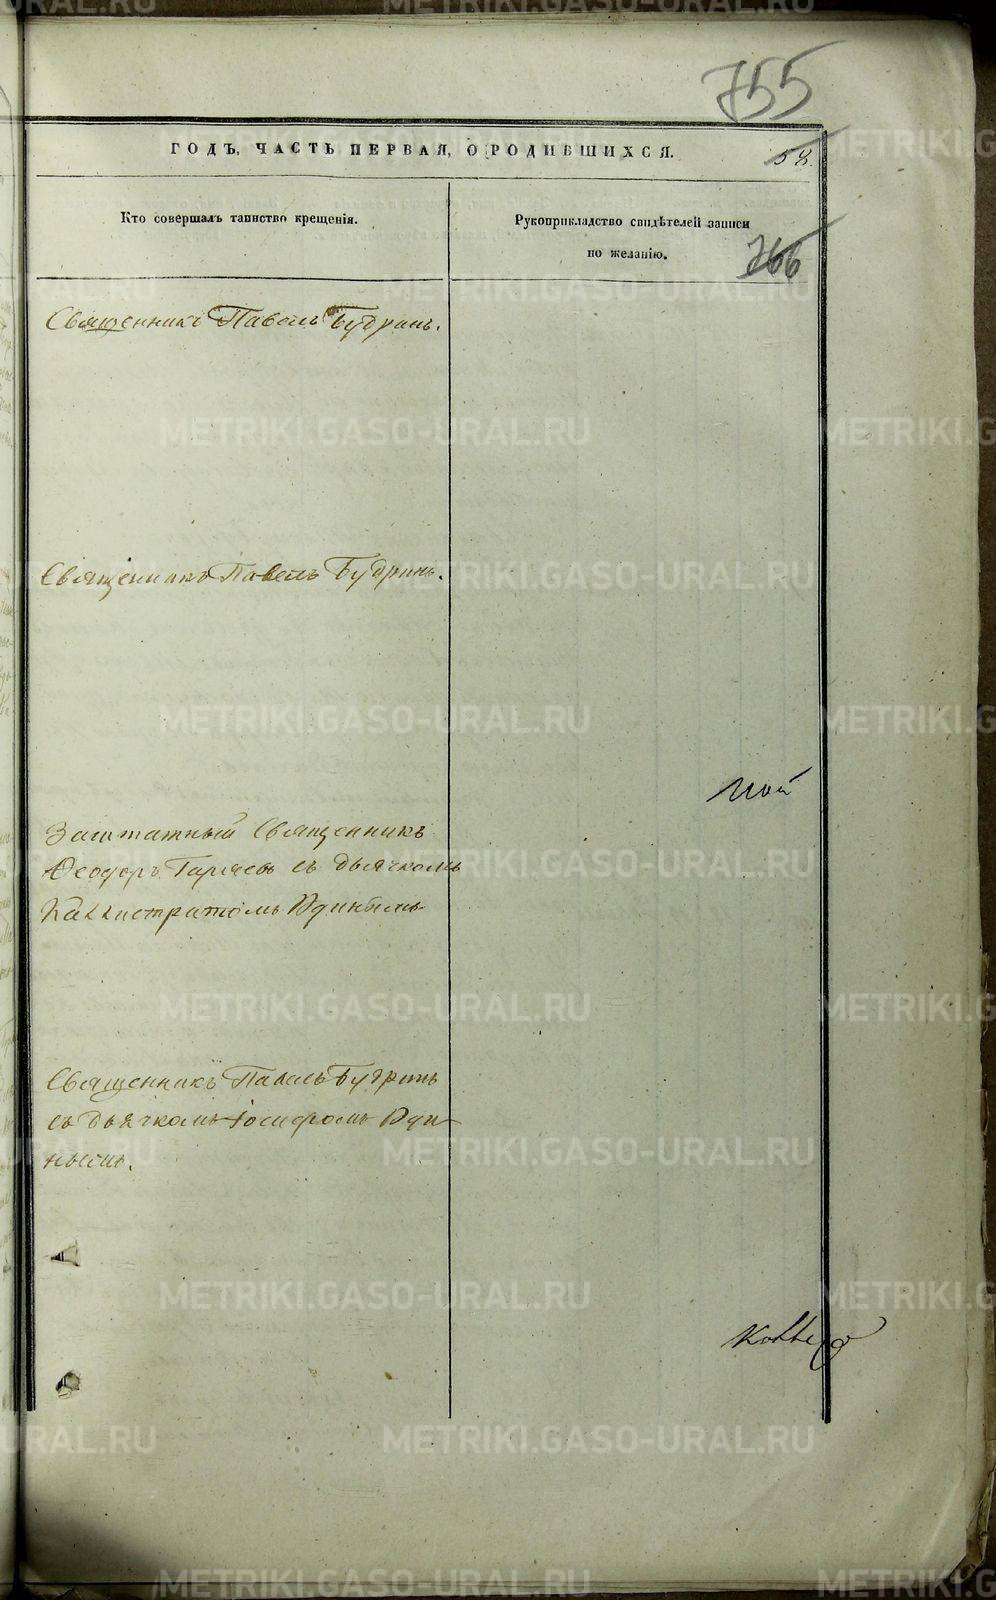 755
ГОДЪ, ЧАСТЬ ПЕРВАЯ, О РОДИВШИХСЯ.
58.
Кто совершалъ таинство крещенія.
Рукоприкладство свидѣтелей записи
по желанію.
766
Священникъ Павелъ Будринъ.
Священникъ Павелъ Будринъ.
Заштатный Священникъ
Феодоръ Гаряевъ съ дьячкомъ
Каллистратомъ
Священникъ Павелъ Будринъ
съ дьячкомъ Іосифомъ
METRIKI.GASO-URAL.RU